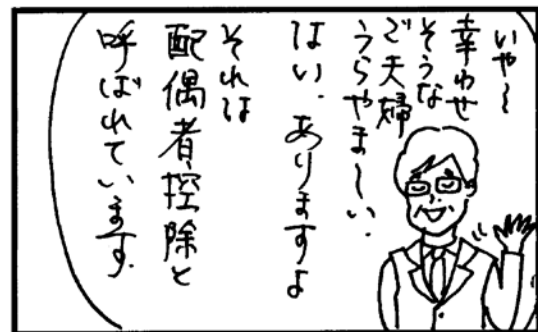 いや〜
幸わせ
そうな
ご夫婦
うらやま〜い.
はい.ありますよ
それは
配偶者控除と
呼ばれています.